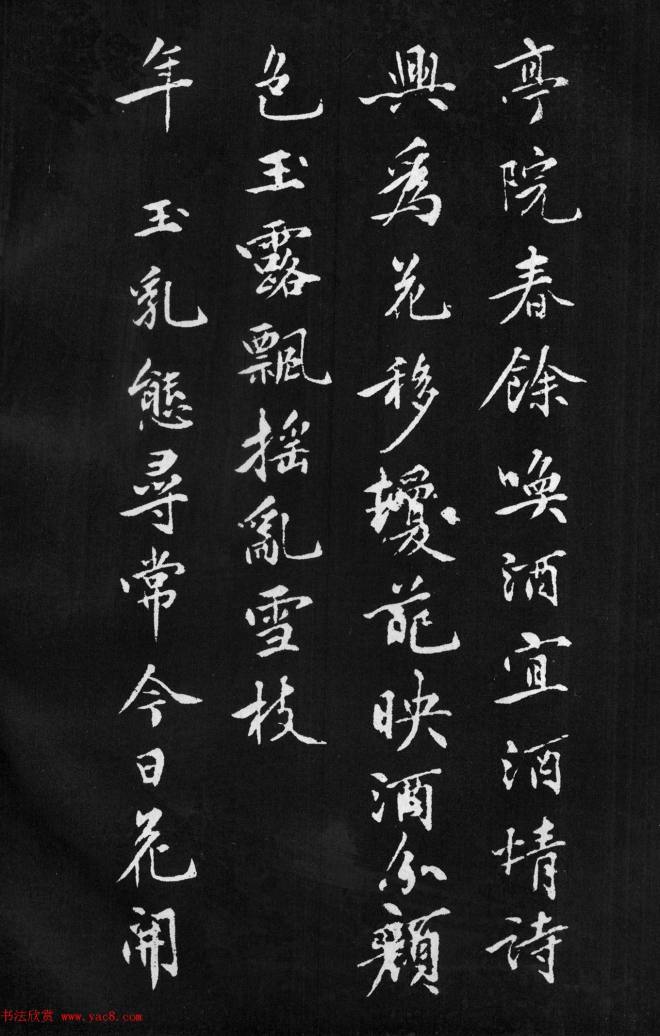 亭院春餘喚酒宜酒情詩
興為花移瓊葩映酒分顏
色玉露飄搖亂雪枝
年 玉乳態尋常今日花開
书法欣赏 www.yac8.com